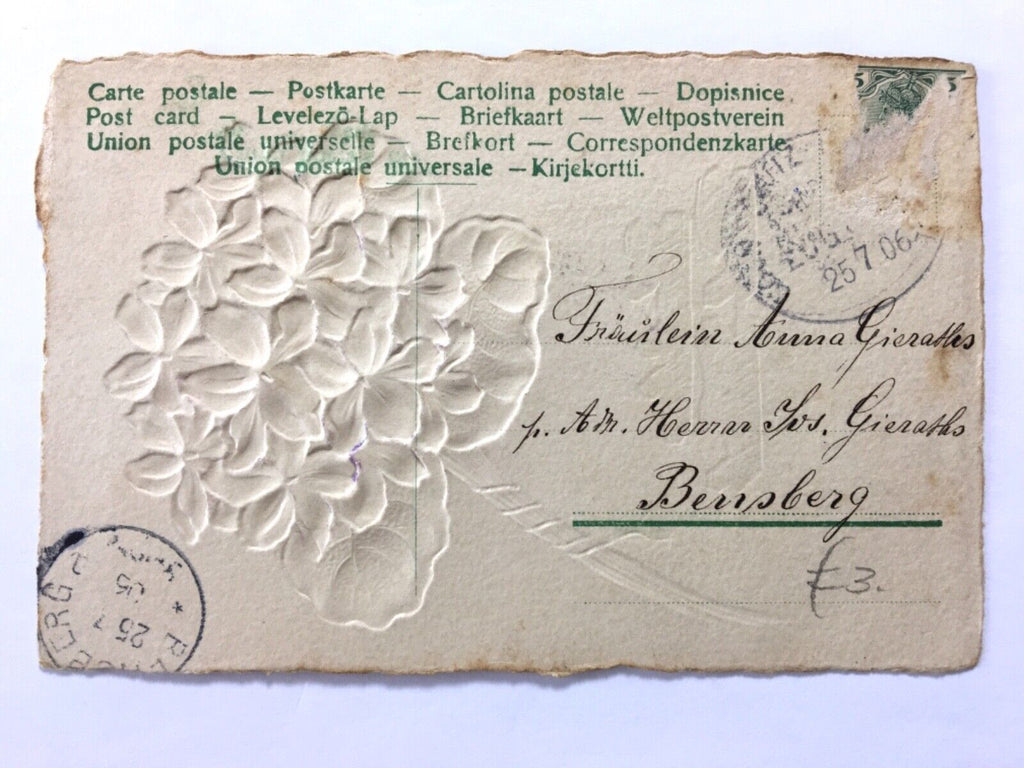 Carte postale — Postkarte — Cartolina postale — Dopisnice
Post card — Levelező-Lap — Briefkaart — Weltpostverein
Union postale universelle — Brefkort — Correspondenzkarte
Union postale universale — Kirjekortti.
5 5
25 7 06
Fräulein Anna Gieraths
p. Adr. Herrn Jos. Gieraths
Bensberg
£3.
25 7